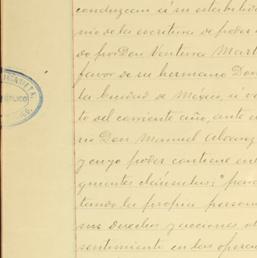 conduzcan á su estabilidad
mio de la escritura de poder
do por Don Ventura Mart
favor de su hermano Don
la Ciudad de México, á
to del corriente año, ante
rio Don Manuel
y cuyo poder contiene
guientes cláusulas: "
tando la propia persona
sus derechos y acciones
sentimiento en las operac
PÚBLICO